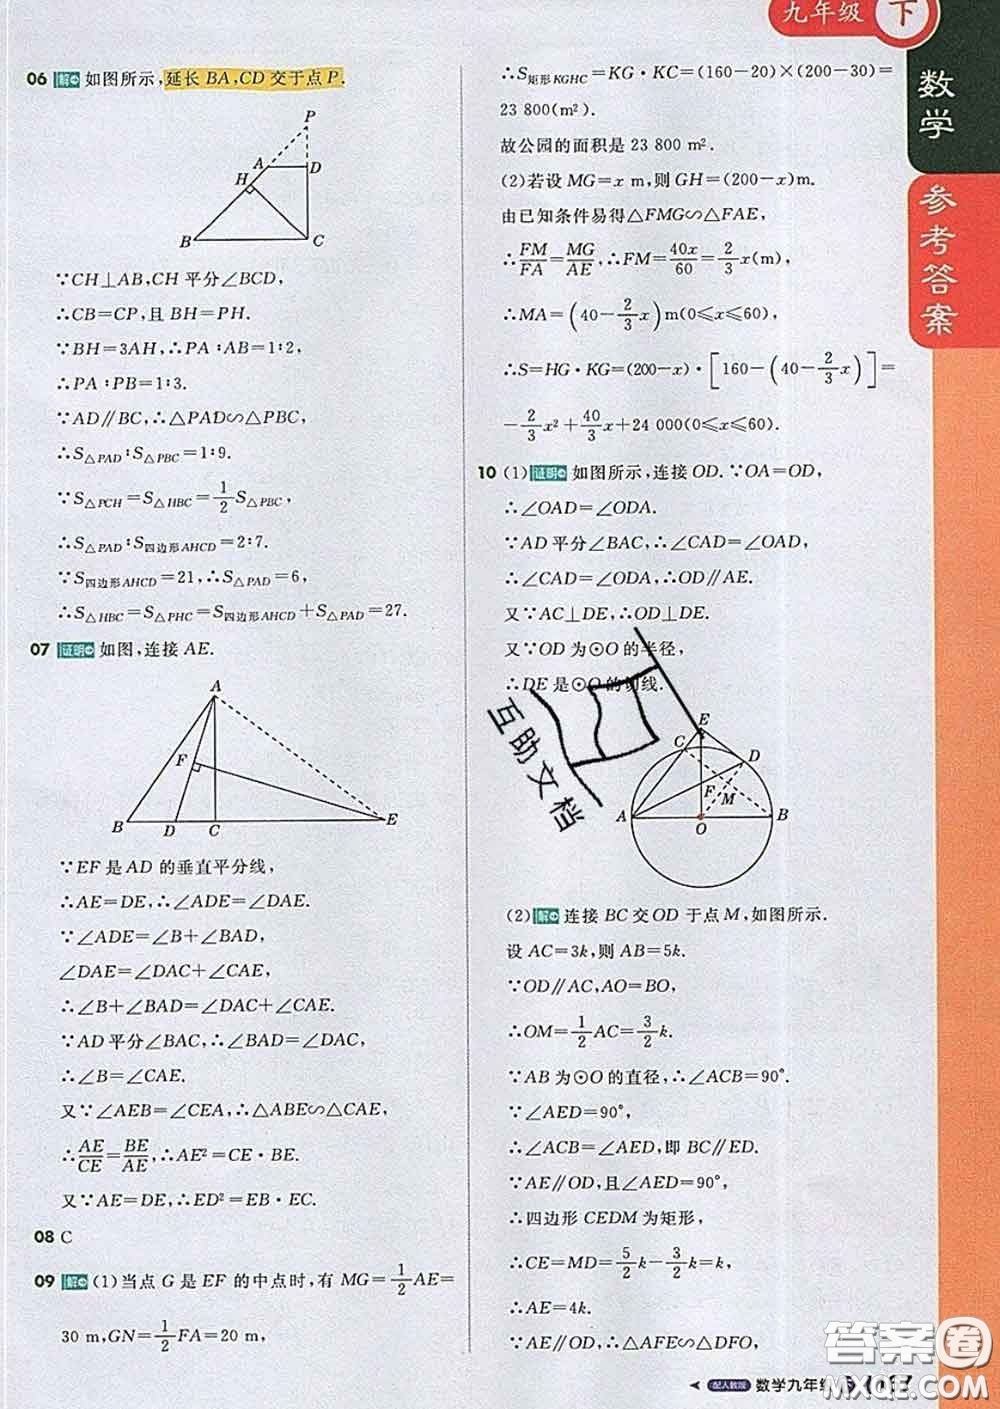 九年级 下
数学
参考答案
06 解 如图所示,延长 BA,CD 交于点 P.
P
A
D
H
B
C
∵CH⊥AB,CH 平分∠BCD,
∴CB=CP,且 BH=PH.
∵BH=3AH,∴PA∶AB=1∶2,
∴PA∶PB=1∶3.
∵AD∥BC,∴△PAD∽△PBC,
∴S△PAD∶S△PBC=1∶9.
∵S△PCH=S△HBC=1/2 S△PBC,
∴S△PAD∶S四边形AHCD=2∶7.
∵S四边形AHCD=21,∴S△PAD=6,
∴S△HBC=S△PHC=S四边形AHCD+S△PAD=27.
07 证明 如图,连接 AE.
A
F
B D C E
∵EF 是 AD 的垂直平分线,
∴AE=DE,∴∠ADE=∠DAE.
∵∠ADE=∠B+∠BAD,
∠DAE=∠DAC+∠CAE,
∴∠B+∠BAD=∠DAC+∠CAE.
∵AD 平分∠BAC,∴∠BAD=∠DAC,
∴∠B=∠CAE.
又∵∠AEB=∠CEA,∴△ABE∽△CAE,
∴AE/CE=BE/AE,∴AE²=CE·BE.
又∵AE=DE,∴ED²=EB·EC.
08 C
09 解 (1)当点 G 是 EF 的中点时,有 MG=1/2 AE=
30 m,GN=1/2 FA=20 m,
∴S矩形KGHC=KG·KC=(160-20)×(200-30)=
23 800(m²).
故公园的面积是 23 800 m².
(2)若设 MG=x m,则 GH=(200-x)m.
由已知条件易得△FMG∽△FAE,
∴FM/FA=MG/AE,∴FM=40x/60=2/3 x(m),
∴MA=(40-2/3 x)m(0≤x≤60),
∴S=HG·KG=(200-x)·[160-(40-2/3 x)]=
-2/3 x²+40/3 x+24 000(0≤x≤60).
10 (1) 证明 如图所示,连接 OD.∵OA=OD,
∴∠OAD=∠ODA.
∵AD 平分∠BAC,∴∠CAD=∠OAD,
∴∠CAD=∠ODA,∴OD∥AE.
又∵AC⊥DE,∴OD⊥DE.
又∵OD 为⊙O 的半径,
∴DE 是⊙O 的切线.
E
C D
F M
A O B
互助文档
(2) 解 连接 BC 交 OD 于点 M,如图所示.
设 AC=3k,则 AB=5k.
∵OD∥AC,AO=BO,
∴OM=1/2 AC=3/2 k.
∵AB 为⊙O 的直径,∴∠ACB=90°.
∵∠AED=90°,
∴∠ACB=∠AED,即 BC∥ED.
∵AE∥OD,且∠AED=90°,
∴四边形 CEDM 为矩形,
∴CE=MD=5/2 k-3/2 k=k,
∴AE=4k.
∵AE∥OD,∴△AFE∽△DFO,
配人教版 数学九年级
答案圈